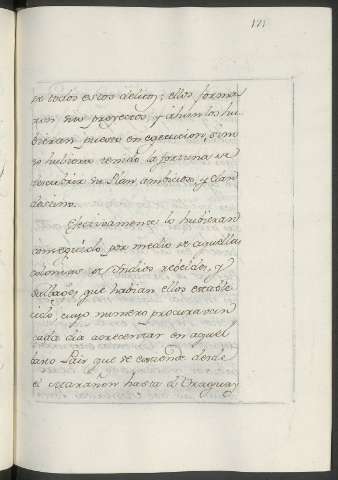 121
de todos estos delitos; ellos forma
ron sus proyectos, y ahun los hu
bieran puesto en egecucion, si no
se hubiera tenido la fortuna de
descubrir su Plan ambicioso, y clan
destino.
Efectivamente lo hubieran
conseguido por medio de aquellas
colonias de Indios rebeldes, y
que habian ellos estable
cido, cuyo numero procuravan
cada dia acrecentar en aquel
basto Pais que se extiende desde
el Marañon hasta el Uraguay